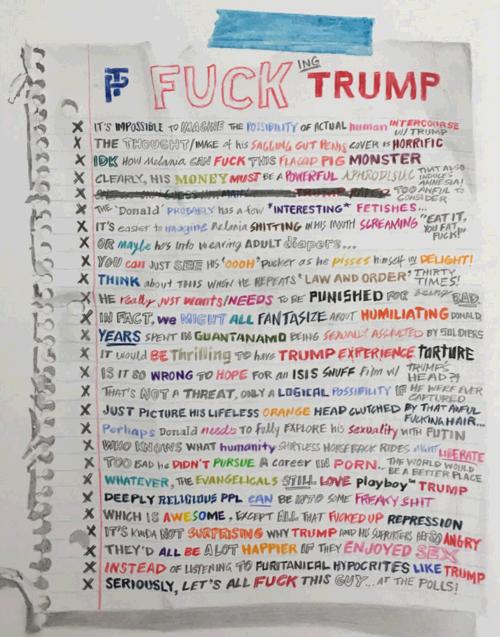 FUCKING TRUMP
X IT'S IMPOSSIBLE TO IMAGINE THE POSSIBILITY OF ACTUAL human INTERCOURSE W/ TRUMP
X THE THOUGHT/IMAGE of his SAGGING GUT PENIS COVER is HORRIFIC
X IDK HOW Melania CAN FUCK THIS FLACCID PIG MONSTER
X CLEARLY, HIS MONEY MUST BE A POWERFUL APHRODISIAC THAT ALSO INDUCES AMNESIA!
X TRUMP TOO AWFUL TO CONSIDER
X THE 'Donald' PROBABLY has a few *INTERESTING* FETISHES...
X IT'S easier to imagine Melania SHITTING IN HIS MOUTH SCREAMING "EAT IT, YOU FAT FUCK!"
X OR maybe he's into wearing ADULT diapers...
X YOU can JUST SEE HIS 'OOOH' pucker as he pisses himself in DELIGHT!
X THINK about THIS WHEN HE REPEATS 'LAW AND ORDER' THIRTY TIMES!
X HE really just wants/NEEDS TO BE PUNISHED FOR being BAD.
X IN FACT, we MIGHT ALL FANTASIZE ABOUT HUMILIATING DONALD
X YEARS SPENT IN GUANTANAMO BEING SEXUALLY ASSAULTED BY SOLDIERS
X IT would BE Thrilling TO have TRUMP EXPERIENCE TORTURE
X IS IT SO WRONG TO HOPE FOR an ISIS SNUFF Film w/ TRUMP'S HEAD?!
X THAT'S NOT A THREAT, ONLY A LOGICAL POSSIBILITY IF HE WERE EVER CAPTURED
X JUST PICTURE HIS LIFELESS ORANGE HEAD CLUTCHED BY THAT AWFUL FUCKING HAIR...
X Perhaps Donald needs to fully EXPLORE his sexuality WITH PUTIN
X WHO KNOWS WHAT humanity SHIRTLESS HORSEBACK RIDES MIGHT LIBERATE
X TOO BAD he DIDN'T PURSUE A career IN PORN. THE WORLD WOULD BE A BETTER PLACE
X WHATEVER, THE EVANGELICALS STILL LOVE playboy™ TRUMP
X DEEPLY RELIGIOUS PPL CAN BE INTO SOME FREAKY SHIT
X WHICH IS AWESOME, EXCEPT ALL THAT FUCKED UP REPRESSION
X IT'S KINDA NOT SURPRISING WHY TRUMP AND HIS SUPPORTERS ARE SO ANGRY
X THEY'D ALL BE A LOT HAPPIER IF THEY ENJOYED SEX
X INSTEAD OF LISTENING TO PURITANICAL HYPOCRITES LIKE TRUMP
X SERIOUSLY, LET'S ALL FUCK THIS GUY... AT THE POLLS!